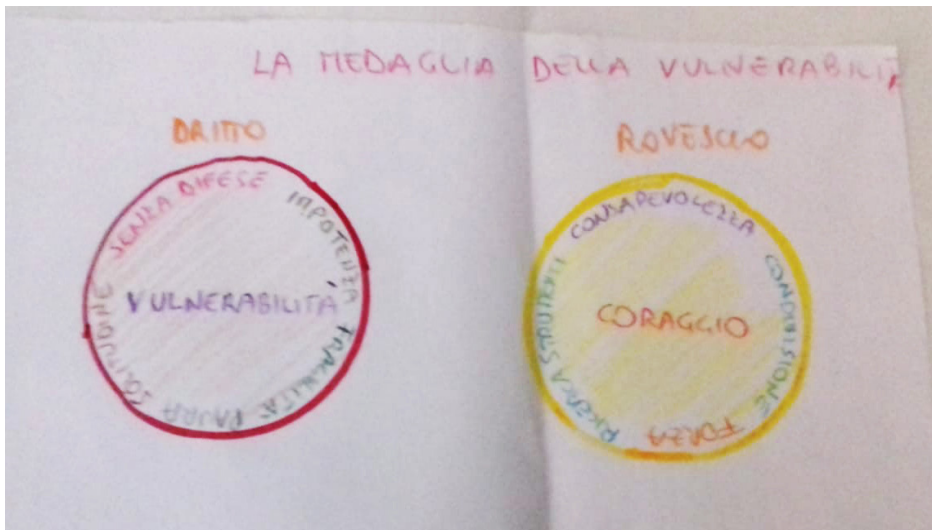 LA MEDAGLIA DELLA VULNERABILITÀ
DRITTO
SENZA DIFESE
IMPOTENZA
FRAGILITA'
PAURA
SOLITUDINE
VULNERABILITÀ
ROVESCIO
CONSAPEVOLEZZA
CONDIVISIONE
FORZA
RICERCA STRUMENTI
CORAGGIO